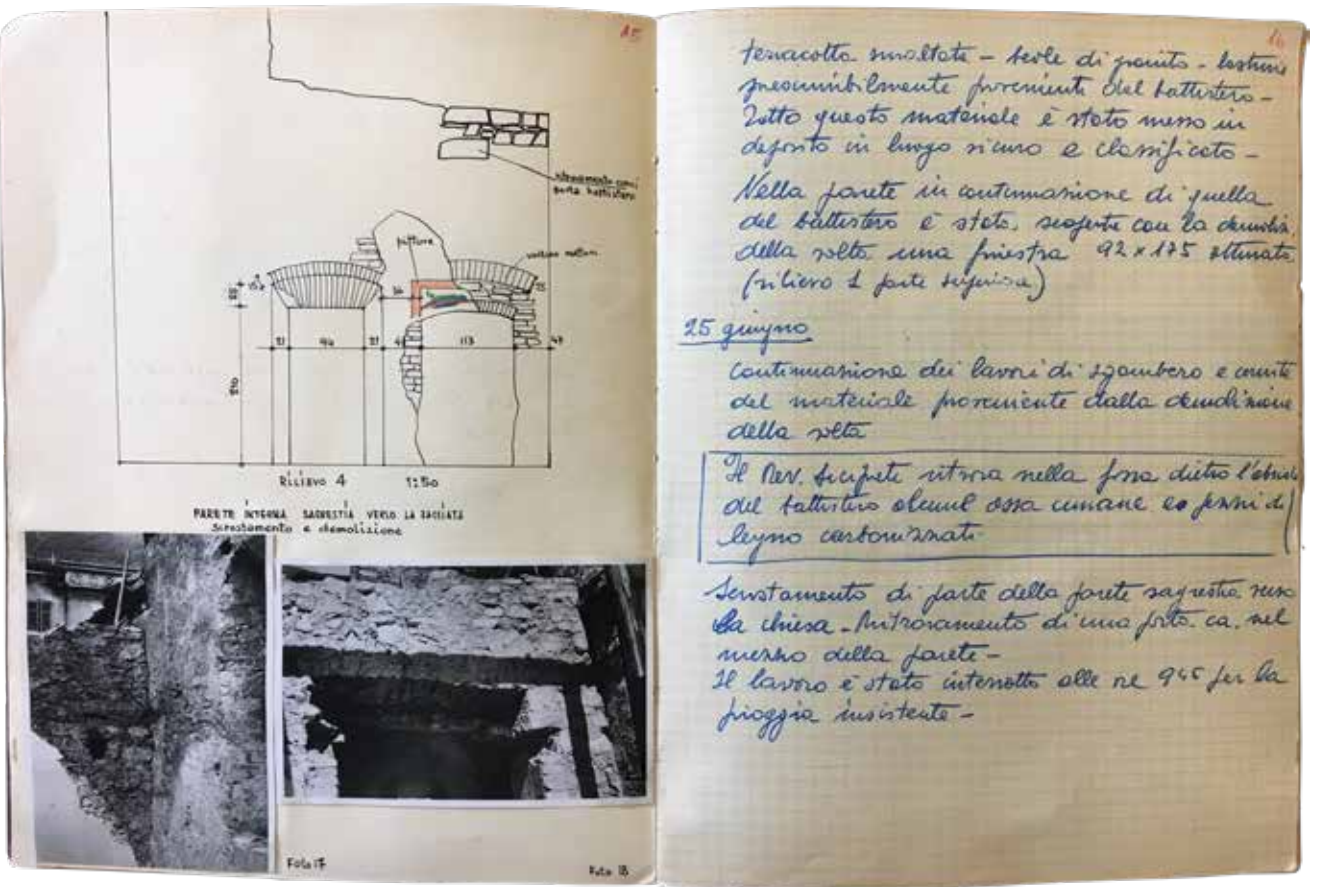 15
pittura
25
15
25
36
21
94
21
113
47
210
RILIEVO 4 1:50
PARETE INTERNA SAGRESTIA VERSO LA FACCIATA
Scrostamento e demolizione
Foto 17
Foto 18
16
terracotta smaltata - beole di granito -
presumibilmente provenienti dal battistero -
Tutto questo materiale è stato messo in
deposito in luogo sicuro e classificato -
Nella parete in continuazione di quella
del battistero è stato scoperto con la demoliz.
della volta una finestra 92 x 175 otturata
(rilievo 1 parte superiore)
25 giugno
Continuazione dei lavori di sgombero e cernite
del materiale proveniente dalla demolizione
della volta
Il Rev. Arciprete ritrova nella fossa dietro l'abside
del battistero alcune ossa umane e pezzi di
legno carbonizzati.
Scrostamento di parte della parete sagrestia verso
la chiesa - Ritrovamento di una porta ca. nel
mezzo della parete -
Il lavoro è stato interrotto alle ore 945 per la
pioggia insistente -